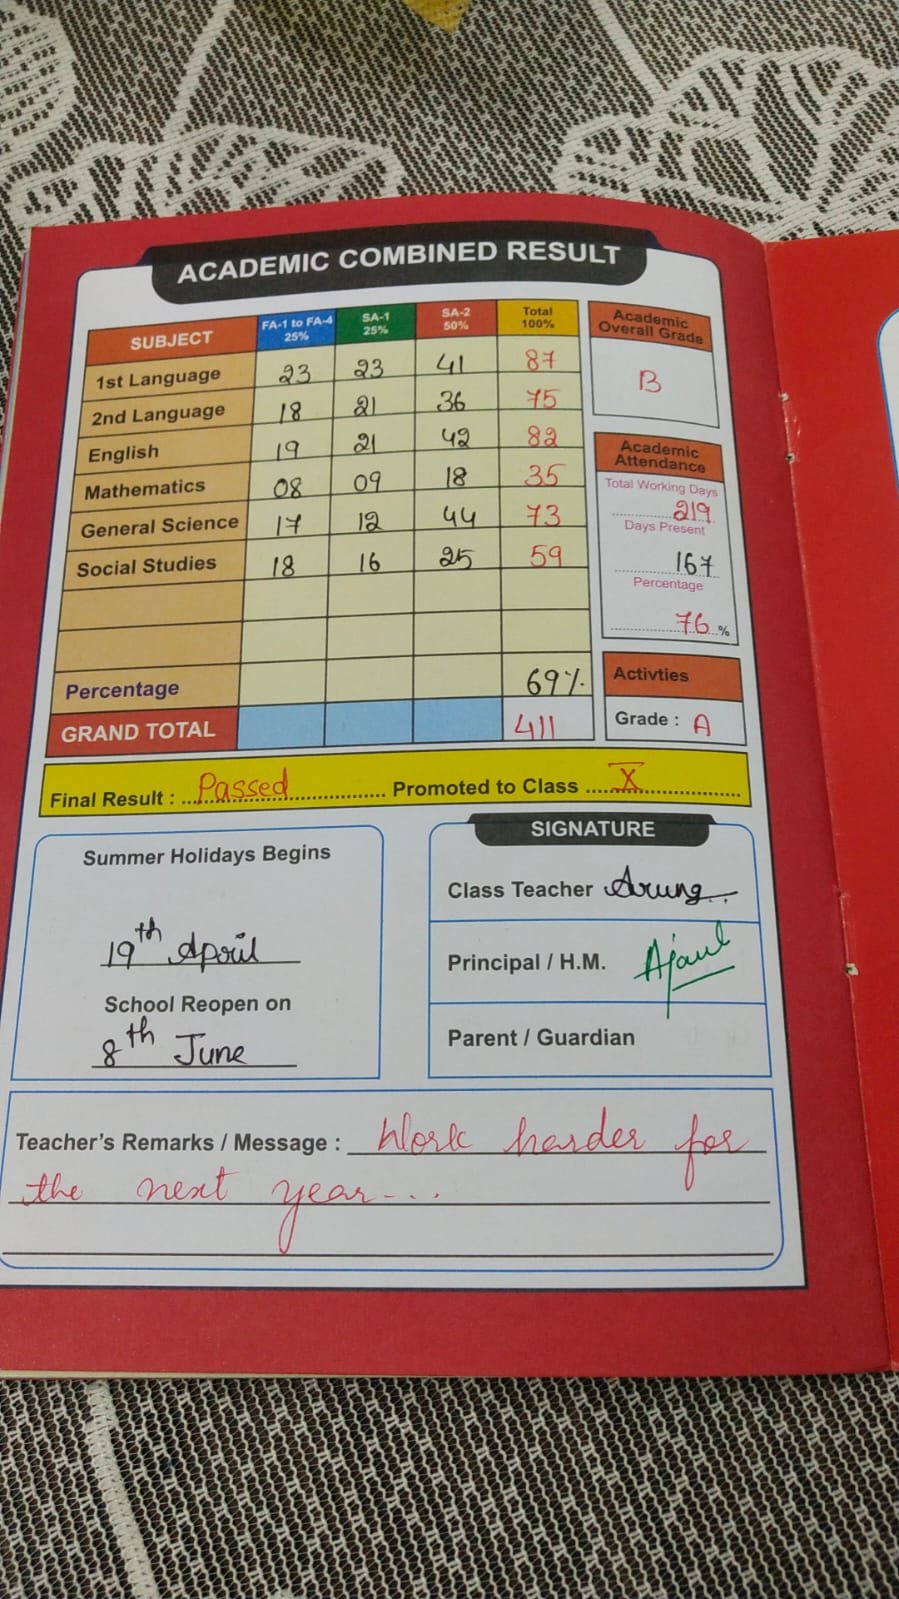 ACADEMIC COMBINED RESULT
SUBJECT FA-1 to FA-4 25% SA-1 25% SA-2 50% Total 100%
1st Language 23 23 41 87
2nd Language 18 21 36 75
English 19 21 42 82
Mathematics 08 09 18 35
General Science 17 12 44 73
Social Studies 18 16 25 59
Percentage 69%
GRAND TOTAL 411
Academic Overall Grade
B
Academic Attendance
Total Working Days
219
Days Present
167
Percentage
76 %
Activties
Grade : A
Final Result : Passed Promoted to Class X
Summer Holidays Begins
19th April
School Reopen on
8th June
SIGNATURE
Class Teacher
Principal / H.M.
Parent / Guardian
Teacher's Remarks / Message : Work harder for
the next year....